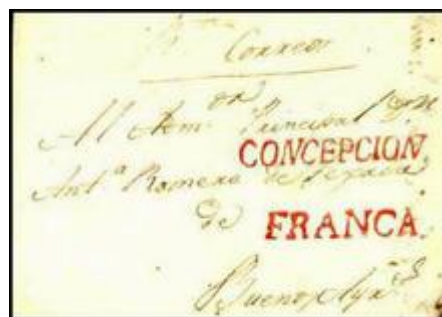 Correos
Al Adm.or Principal Dn
CONCEPCION
Ant.a Romero de Texada
de
FRANCA
Buenos Ayr.s